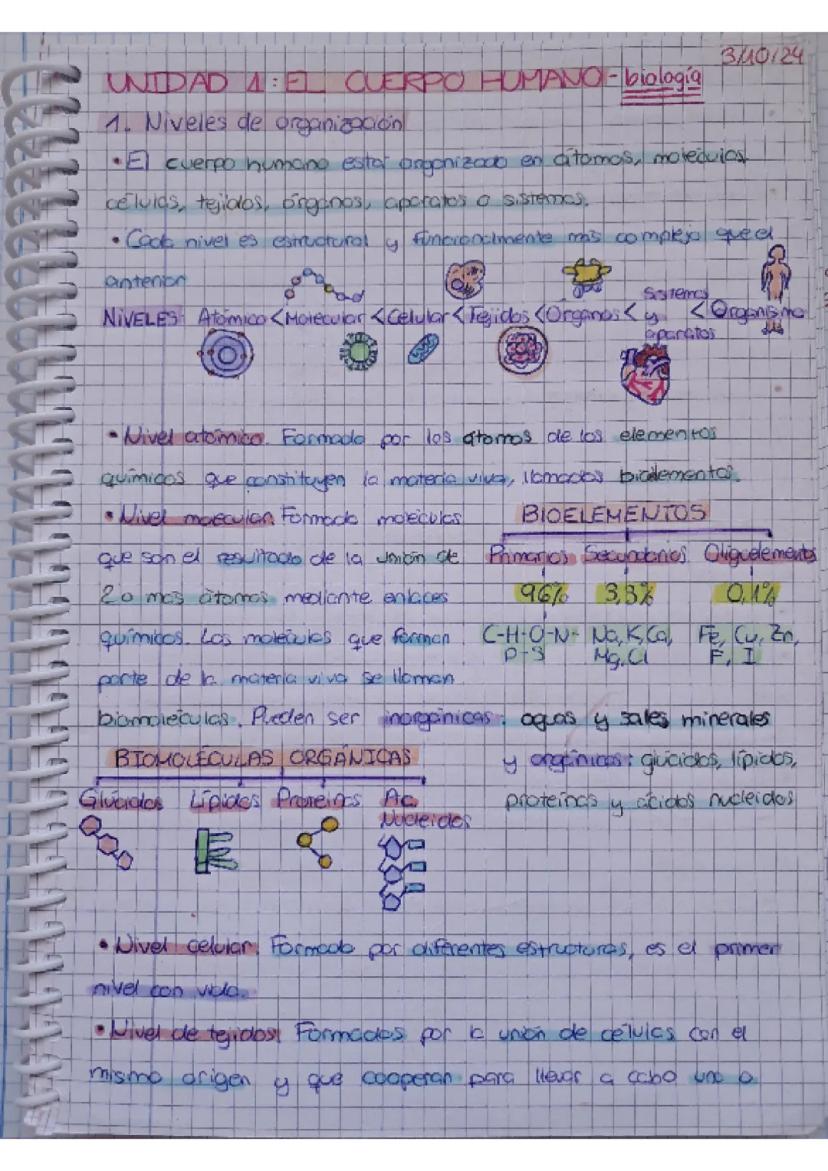 3/10/24
UNIDAD 1: EL CUERPO HUMANO - biología
1. Niveles de organización
• El cuerpo humano está organizado en átomos, moléculas,
células, tejidos, órganos, aparatos o sistemas.
• Cada nivel es estructural y funcionalmente más complejo que el
anterior
NIVELES: Atómico < Molecular < Celular < Tejidos < Órganos < Sistemas y aparatos < Organismo
• Nivel atómico. Formado por los átomos de los elementos
químicos que constituyen la materia viva, llamados bioelementos.
• Nivel molecular. Formado moléculas
que son el resultado de la unión de
2 o más átomos mediante enlaces
químicos. Las moléculas que forman
parte de la materia viva se llaman
biomoléculas. Pueden ser inorgánicas: aguas y sales minerales
y orgánicas: glúcidos, lípidos,
proteínas y ácidos nucleidos
BIOELEMENTOS
Primarios Secundarios Oligoelements
96% 3,3% 0,1%
C-H-O-N- Na, K, Ca, Fe, Cu, Zn,
P-S Mg, Cl F, I
BIOMOLÉCULAS ORGÁNICAS
Glúcidos Lípidos Proteínas Ac.
Nucleidos
• Nivel celular. Formado por diferentes estructuras, es el primer
nivel con vida.
• Nivel de tejidos: Formados por la unión de células con el
mismo origen y que cooperan para llevar a cabo una o